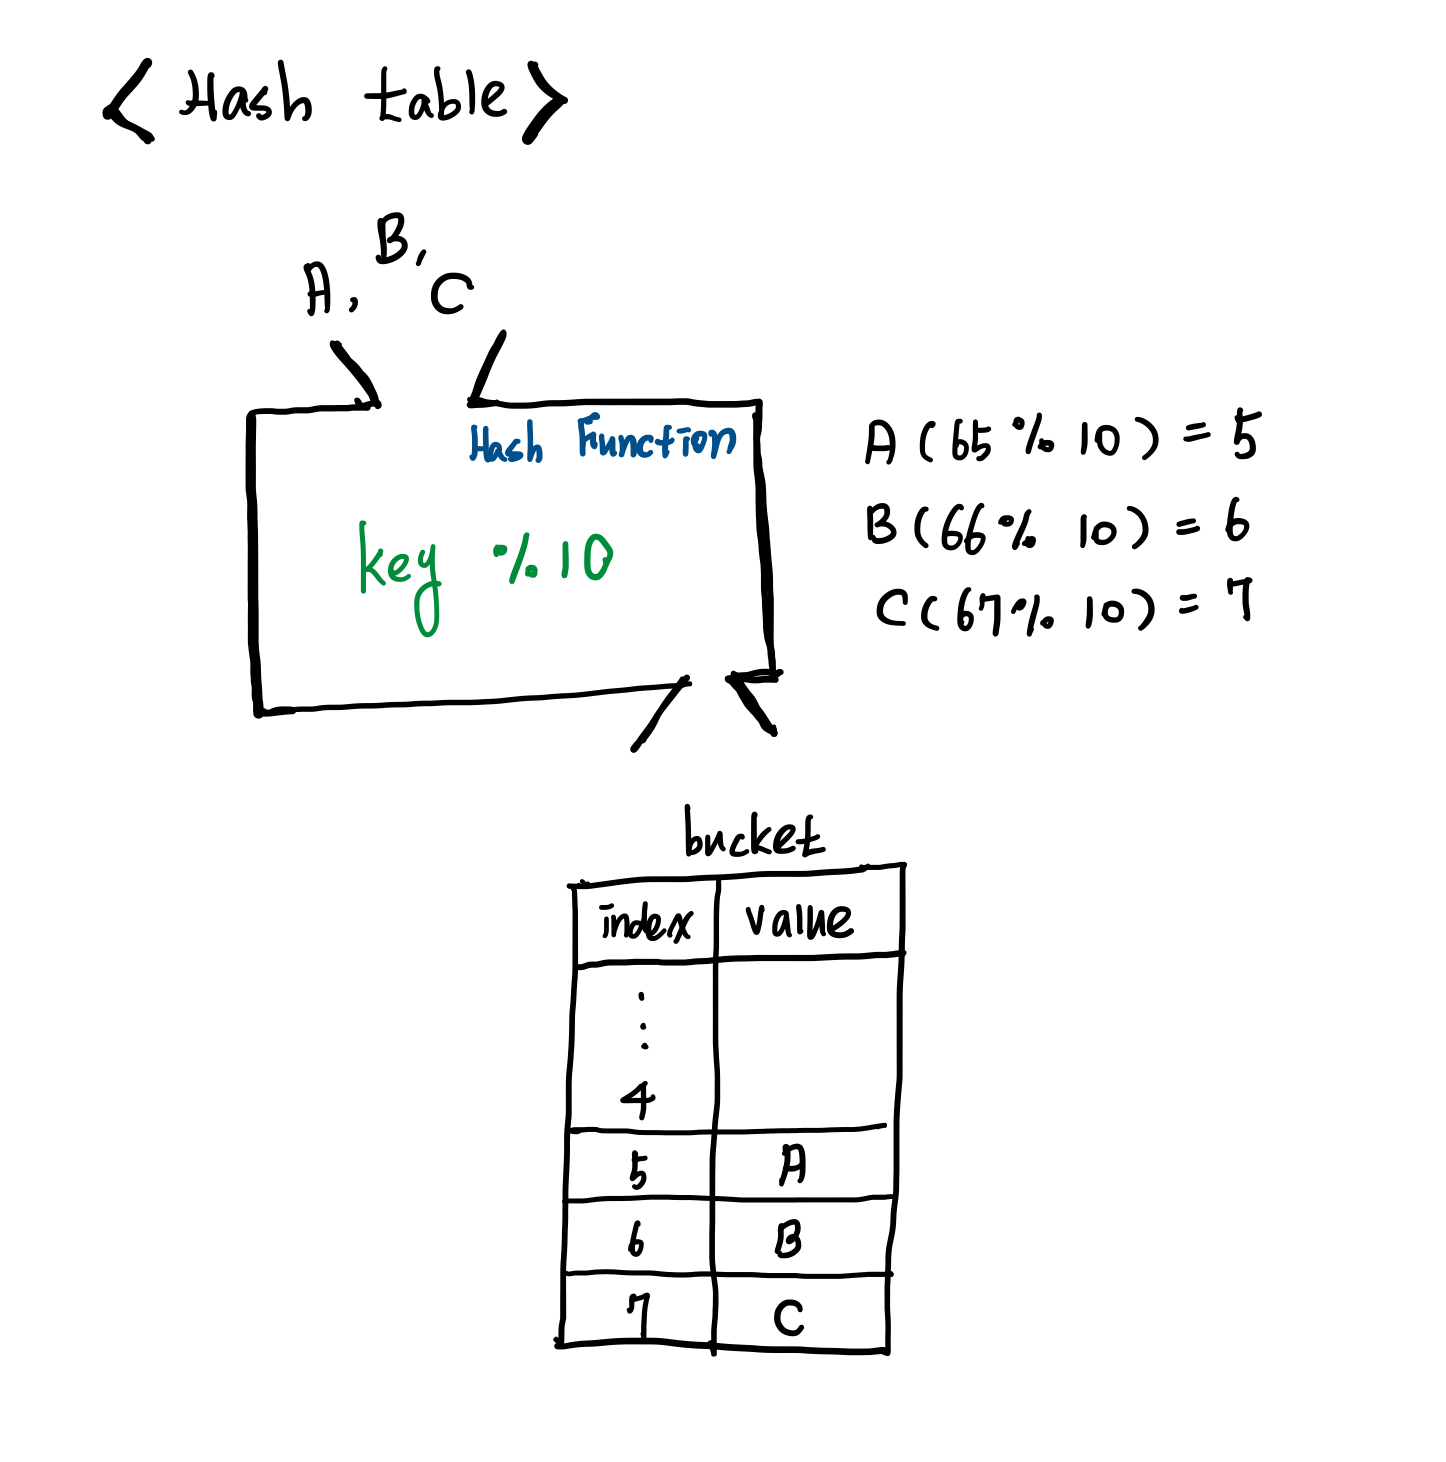 < Hash table >
A, B, C
Hash Function
key % 10
A (65 % 10) = 5
B (66 % 10) = 6
C (67 % 10) = 7
bucket
index value
⋮
4
5 A
6 B
7 C